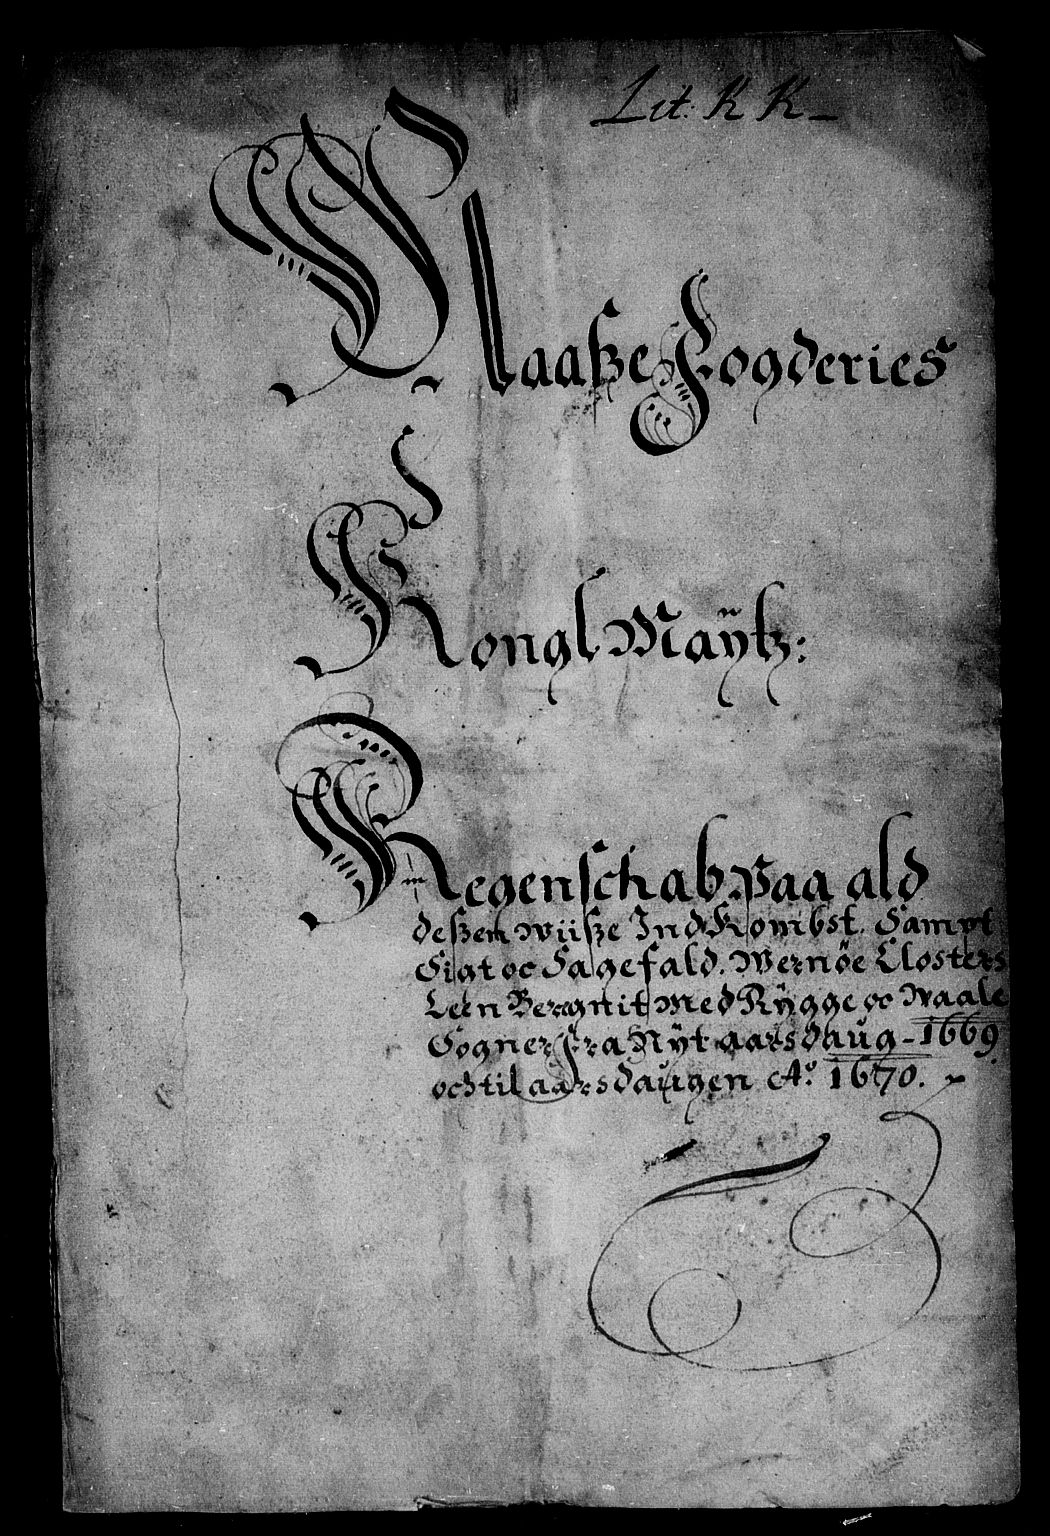 Lit: K K
Maaße Fogderies
Kongl Maÿtz:
Regenschab Paa ald
deßen wiiße Indkombst. Sampt
Sigt oc Sagefald. Wernöe Closters
Leen Beregnit Med Rÿgge oc Waale
Sogner Fra Nÿt aarsdaug - 1669
och til aarsdaugen Aº 1670.